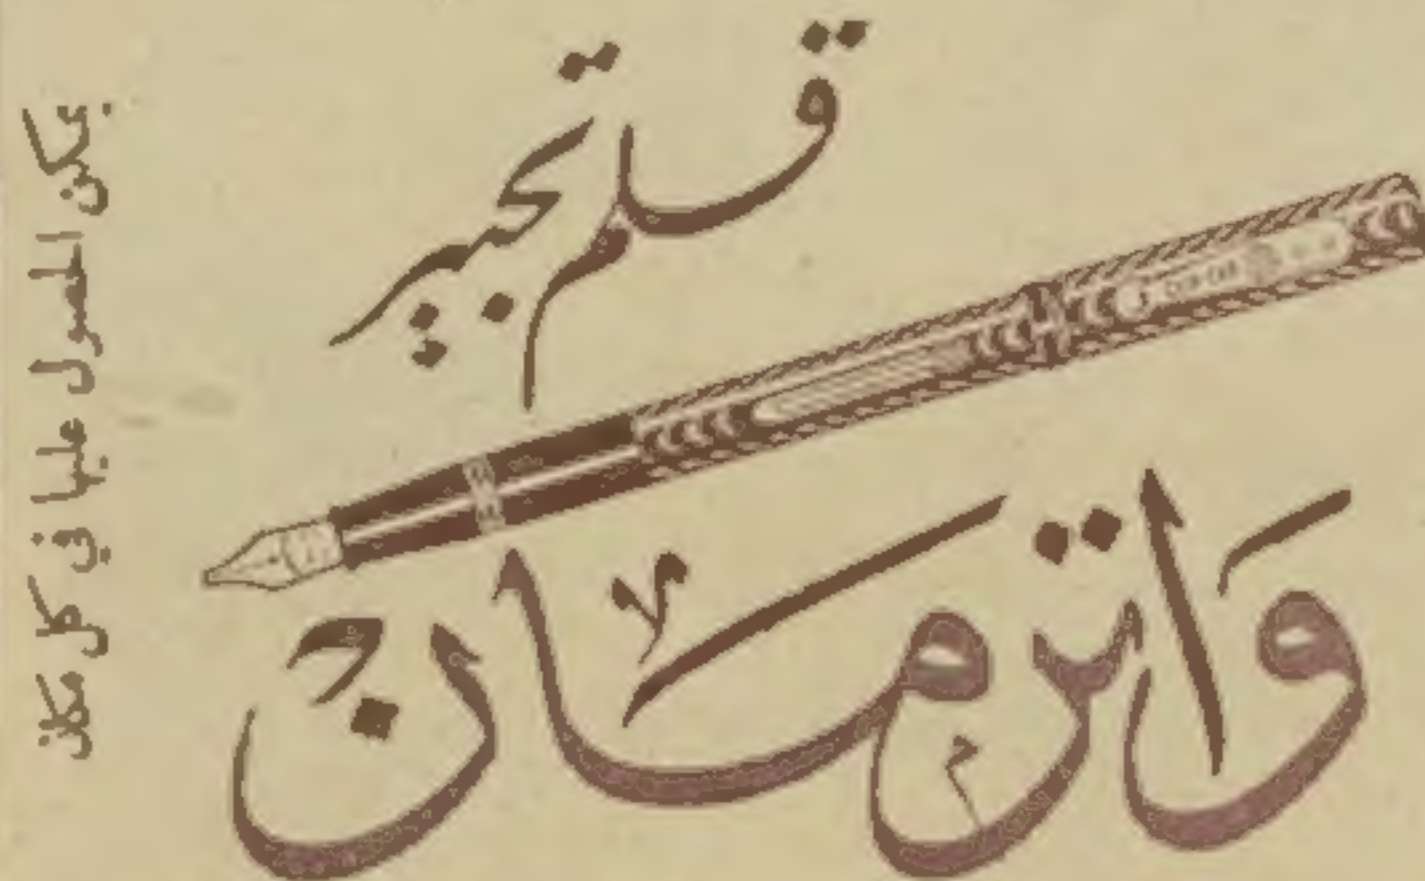 قلم تحبير
وَاترمان
يمكن الحصول عليها في كل مكان